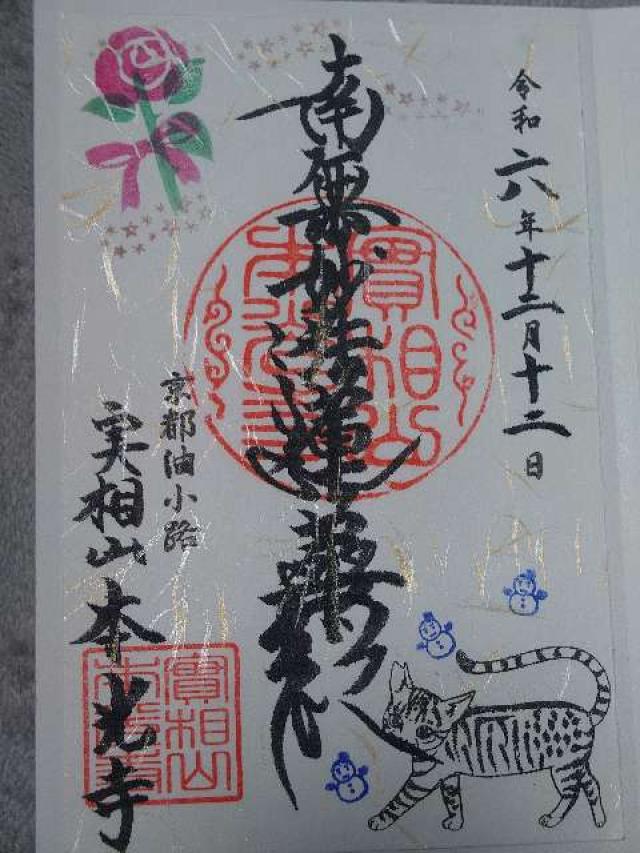 令和六年十二月十二日
南無妙法蓮華経
京都油小路
実相山本光寺
實相山
本光寺
實相山
本光寺